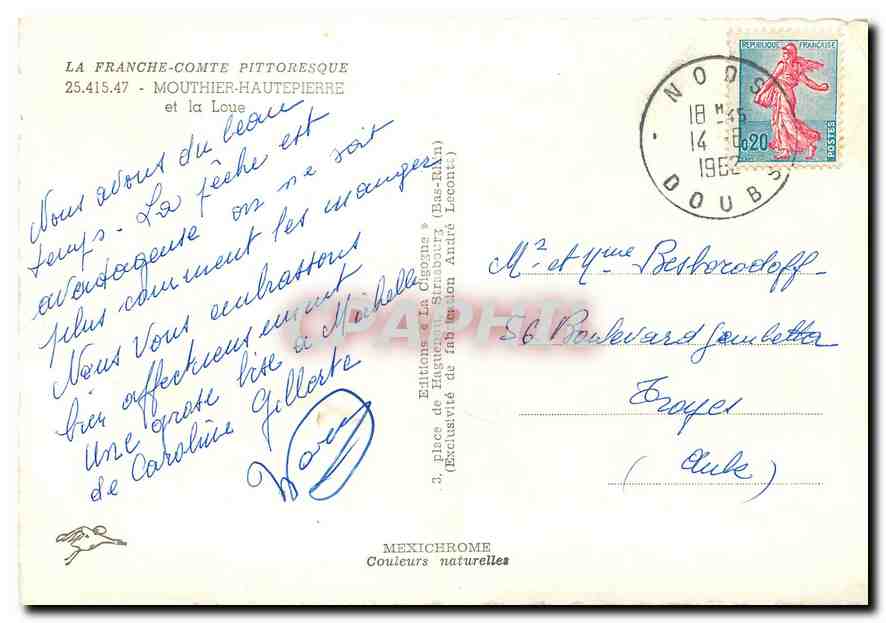 LA FRANCHE-COMTE PITTORESQUE
25.415.47 - MOUTHIER-HAUTEPIERRE
et la Loue
Nous avons du beau
temps. La pêche est
avantageuse on ne sait
plus comment les manger
Nous vous embrassons
bien affectueusement
Une grosse bise a Michelle
de Caroline Gillerte
Editions « La Cigogne »
3, place de Haguenau, Strasbourg (Bas-Rhin)
(Exclusivité de fabrication André Leconte)
CPAPHIL
REPUBLIQUE FRANÇAISE
0,20
POSTES
NODS
18 H 45
14 -8
196
DOUBS
Mr et Mme Besborodoff
56 Boulevard Gambetta
Troyes
(Aube)
MEXICHROME
Couleurs naturelles